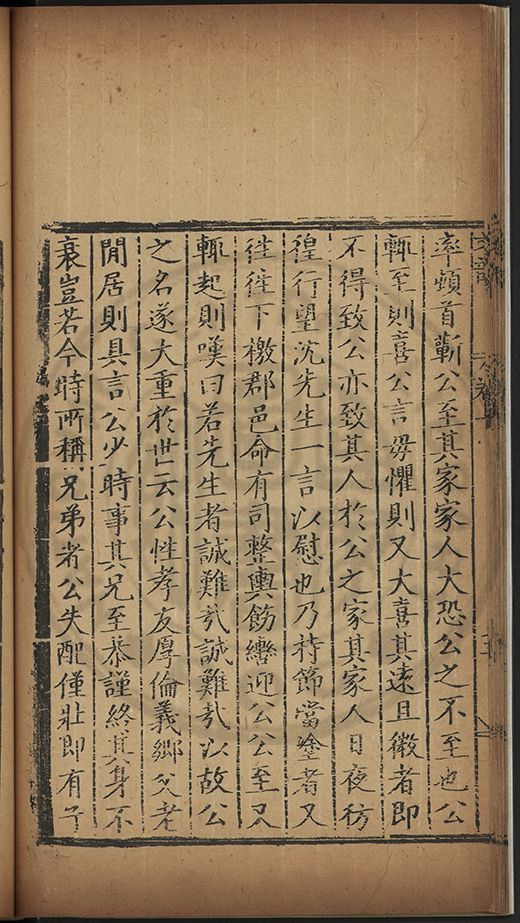 率頓首蘄公至其家家人大恐公之不至也公
輒至則喜公言毋懼則又大喜其遠且徽者即
不得致公亦致其人於公之家其家人日夜彷
徨行望沈先生一言以慰也乃持節當塗者又
徃徃下檄郡邑命有司整輿飭轡迎公公至又
輒起則嘆曰若先生者誠難㢤誠難㢤以故公
之名遂大重於世云公性孝友厚倫義鄉父老
閒居則具言公少時事其兄至恭謹終其身不
衰豈若今時所稱兄弟者公失配僅壯即有子